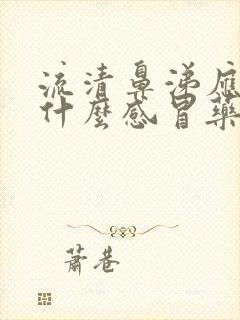 流清鼻涕應
什麼感冒藥
蕭巷